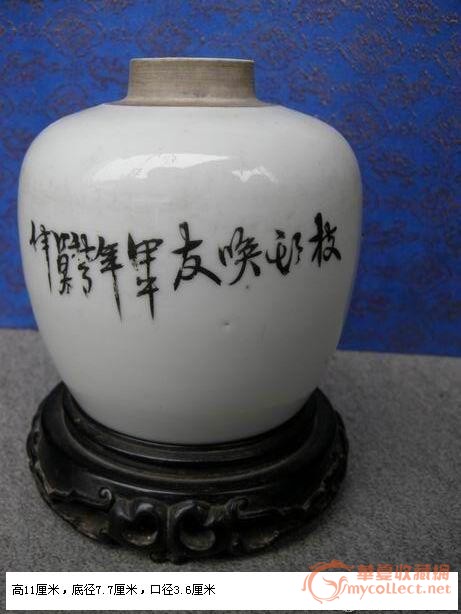 枝頭喚友甲年
高11厘米，底径7.7厘米，口径3.6厘米
華夏收藏网
mycollect.net